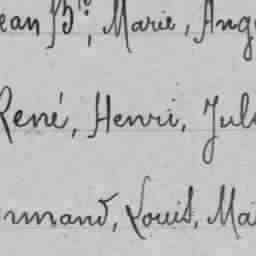 ean Bte, Marie, Ang
René, Henri, Jul
rmand, Louis, Ma